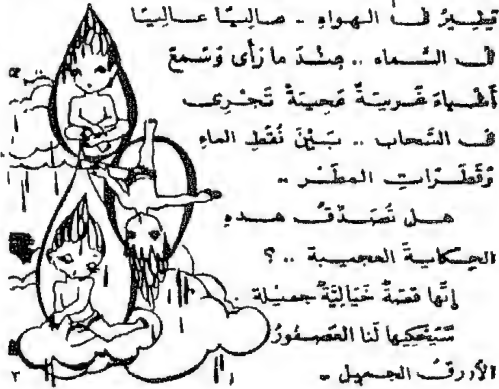 يَطِيرُ فى الهواءِ - عاليًا عاليًا
فى السَّماء .. عِنْدَ ما رَأى وَسَمِعَ
أَشْياءَ غَريبَةً عَجيبَةً تَجْرِى
فى السَّحاب .. بَيْنَ نُقَطِ الماءِ
وَقَطَراتِ المطَرِ ..
هل تُصَدِّقُ هذه
الحِكايةَ العجيبة .. ؟
إنَّها قصَّةٌ خَيَالِيَّةٌ جميلة
سَيَحْكِيها لَنا العُصْفورُ
الأزرقُ الجميل .
٣